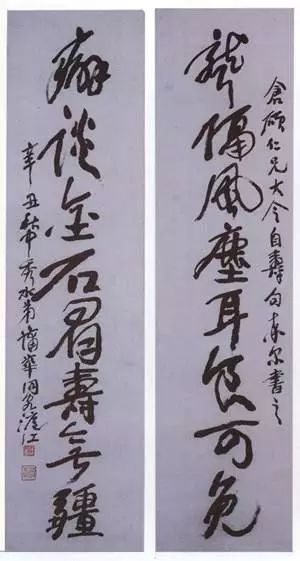 倉碩仁兄大令自壽句書之
聾隔風塵耳食可免
癖談金石眉壽無疆
辛丑秀水弟蒲華同客滬江